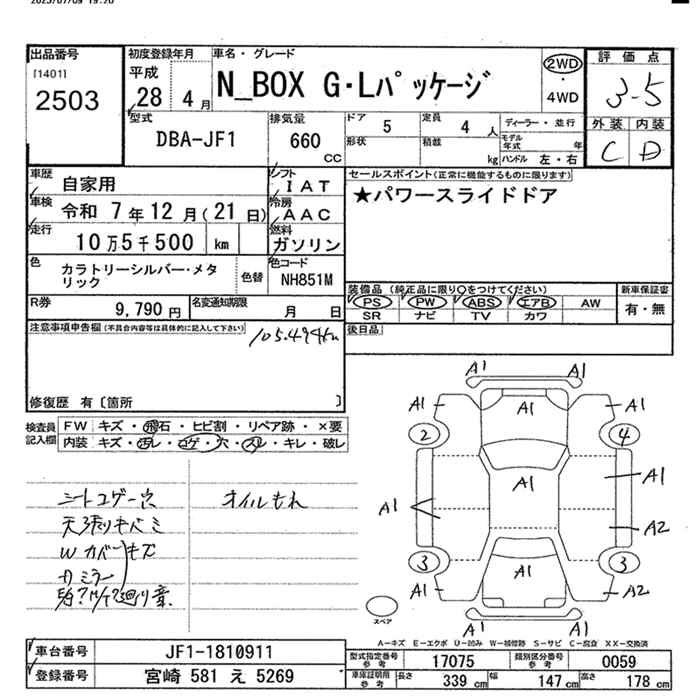 2023/07/09 19:20
出品番号
[1401]
2503
初度登録年月
平成
28 4月
車名・グレード
N_BOX G・Lパッケージ
2WD
・
4WD
評価点
3.5
外装 内装
C D
型式
DBA-JF1
排気量
660
CC
ドア
5
定員
4 人
ディーラー・並行
形状
積載
kg
モデル年式 年
ハンドル 左・右
車歴
自家用
シフト
IAT
車検
令和 7年12月(21日)
冷房
AAC
走行
10万5千500 km
燃料
ガソリン
色
カラトリーシルバー・メタリック
色替
色コード
NH851M
R券
9,790 円
名変通知期限
月 日
セールスポイント(正常に機能するものに限ります)
★パワースライドドア
装備品 (純正品に限り○をつけてください)
新車保証書
PS PW ABS エアB AW
有・無
SR ナビ TV カワ
後日品
注意事項申告欄 (不具合内容等は具体的に記入して下さい)
105.494km
修復歴 有〔箇所 〕
検査員記入欄
FW キズ・飛石・ヒビ割・リペア跡・×要
内装 キズ・汚レ・コゲ・穴・スレ・キレ・破レ
シートコゲ穴
天張りキバミ
Wカバーキズ
オイルもれ
A1 A1
A1 A1 A1
2 4
A1 A1
A1
A2
3 3
A1 A1 A2
スペア
A-キズ E-エクボ U-凹み W-補修跡 S-サビ C-腐食 XX-交換済
車台番号
JF1-1810911
型式指定番号 参考
17075
類別区分番号 参考
0059
登録番号
宮崎 581 え 5269
車庫証明用 参考
長さ 339 cm
幅 147 cm
高さ 178 cm